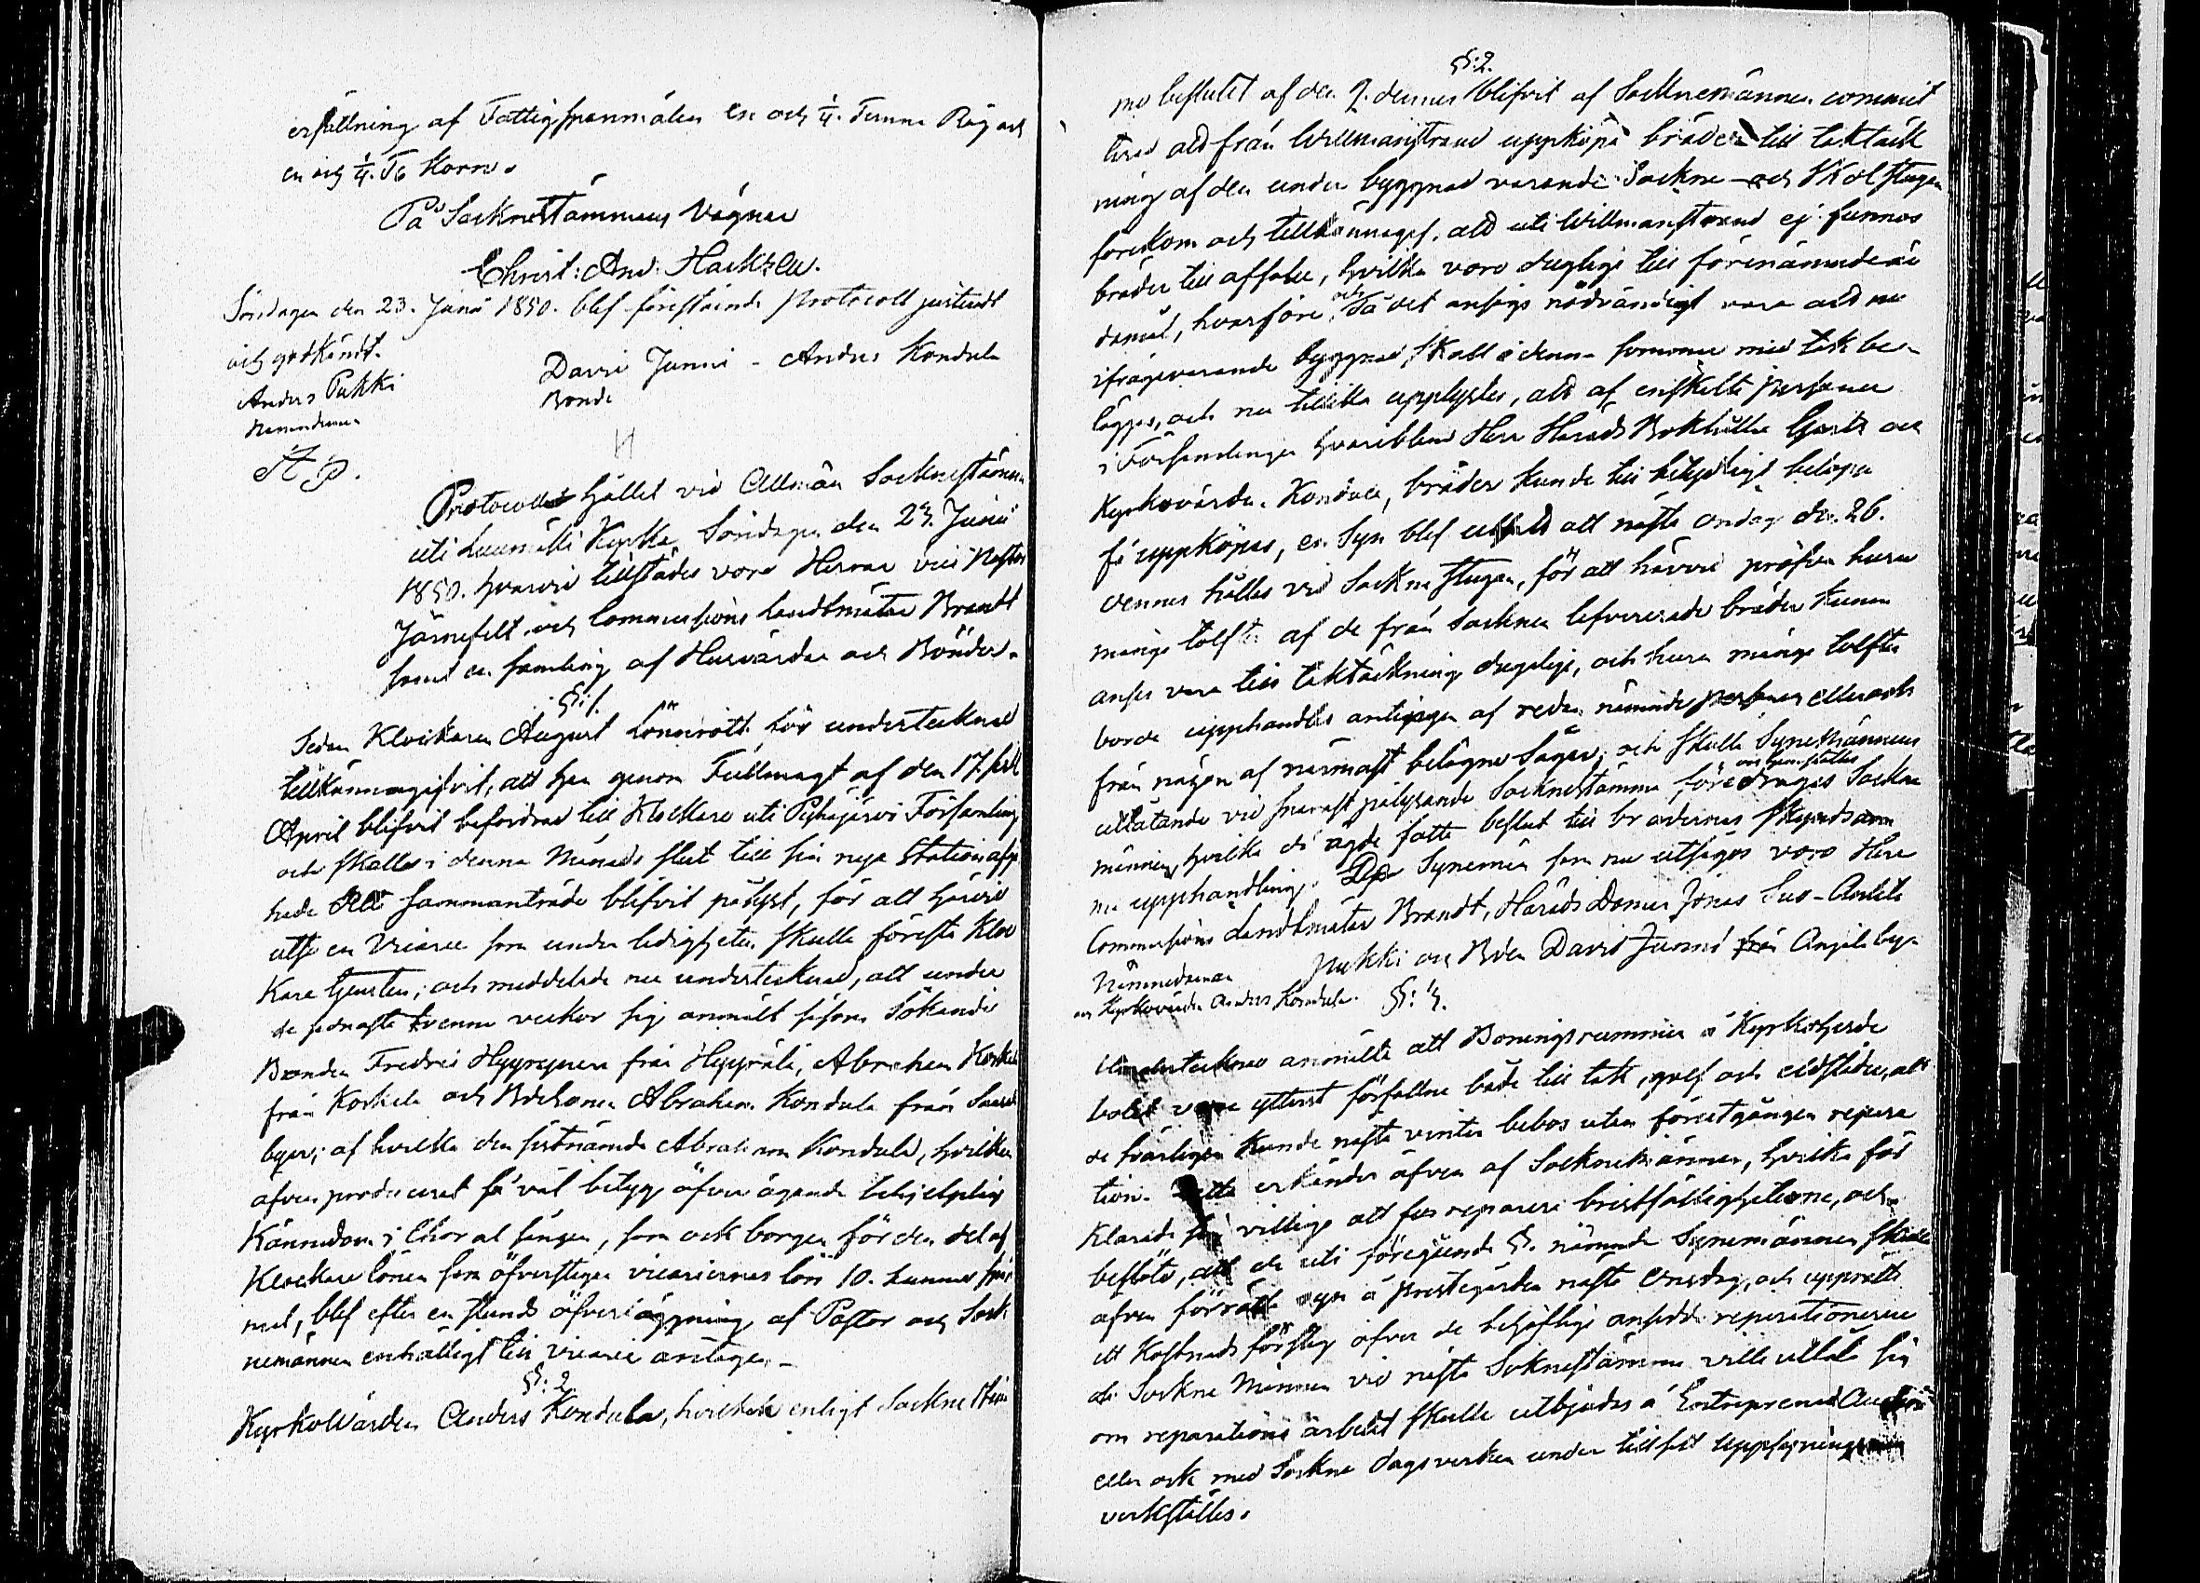 erfällning af Fattigspanmålen en och 1/4. Tunna Råg och
en och 1/4. To Korn.
På Socknestämmans Vägnar
Christ: And: Hackzell.
Söndagen den 23. Junii 1850. blef förestående Protocoll justeradt
och godkändt.
Anders Pukki
Nämndeman
A P.
David Junni - Anders Kondula
Bonde
Protocollet hållet vid Allmän Socknestämma
uti Luumäki Kyrka Söndagen den 23. Junii
1850. hvarvid tillstädes voro Herrar vice Pastor
Järnefelt och Commissions Landtmätar Brandt
samt en samling af Husvärdar och Bönder.
§: 1.
Sedan Klockaren August Lönnrott för undertecknad
tillkännagifvit, att han genom Fullmagt af den 17. sistl
April blifvit befordrad till Klockare uti Pyhäjärvi Församling
och skulle i denna Månads slut till sin nya Station afgå
hade Ett sammanträde blifvit pålyst, för att härvid
utse en Vicarie som under ledigheten skulle förestå Kloc
kare tjensten; och meddelade nu undertecknad, att under
de sednaste tvenne veckor sig anmält såsom Sökande
Bonden Fredric Hyyrynen från Hyyrälä, Abraham Korkela
från Korkela och Bdesonen Abraham Kondula från
byar; af hvilka den sistnämnde Abraham Kondula, hvilken
äfven producerat så väl betyg öfver ägande behjelplig
Kännedom i Choral sången, som ock borgen för den del af
Klockare lönen som öfverstiger vicariernes lön 10. tunnor span
mål, blef efter en stunds öfverläggning af Pastor och Sock
nemännen enhälligt till Vicarie antagen. -
§: 2
Kyrkovärden Anders Kondula, hvilken enligt Sockne Stäm
§: 2.
mo beslutet af den 2. dennes blifvit af Socknemännen commit
terad att från Willmanstrand uppköpa bräder till taktäck
ning af den under byggnad varande Sockne - och Skolstugan
förekom och tillkännagaf, att uti Willmanstrand ej funnos
bräder till afsalu, hvilka voro duglige till förenämnde än
damål, hvarföre och då det ansågs nödvändigt vara att nu
ifrågavarande byggnad skall i denna sommar med tak be-
läggas, och nu tillika upplystes, att af enskilte personer
i Församlingen hvaribland Herr Härads Bokhålla och
Kyrkovärden Kondula, bräder kunde till behöfligt belopp
få uppköpas, en Syn blef utsatt att nästa onsdag den 26.
dennes hålles vid Sockne stugan, för att härvid pröfva huru
många tolfter af de från Socknen lefvererade bräder kunna
anses vara till taktäckning duglige, och huru många tolfter
borde upphandlas antingen af redan nämnde personer eller och
från någon af närmast belägne Sågar; och skulle Synemännens
utlåtande vid härnäst pålysande Socknestämma föredragas Sockne
männen, hvilka då ägde fatta beslut till brädernas skyndsam
ma upphandling. Synemän som nu utsågos voro Herr
Commissions Landtmätar Brandt, Härads Domar Jonas Suo-Anttila
Nämndeman Pukki och Bden David Junni från Anjala by
och Kyrkovärden Anders Kondula. §: 3.
Undertecknad anmälte att Boningsrummen å Kyrkoherde
bolet vore ytterst förfallne både till tak, golf och eldstäder, att
de svårligen kunde nästa vinter bebos utan föregången repara
tion. Detta erkändes äfven af Socknemännen, hvilka för
klarade sig villige att få reparera bristfälligheterne, och
beslöto, att de uti föregående §. nämnde Synemännen skulle
äfven förrätta syn å prestegården nästa Onsdag, och upprätta
ett Kostnads förslag öfver de behöflige ansedde reparationerne
då Sockne Männen vid nästa Soknestämma ville utlåta sig
om reparations arbetet skulle utbjudas å Entreprenad Auction
eller ock med Sockne dagsverken under tillsatt Uppsynings man
verkställes.